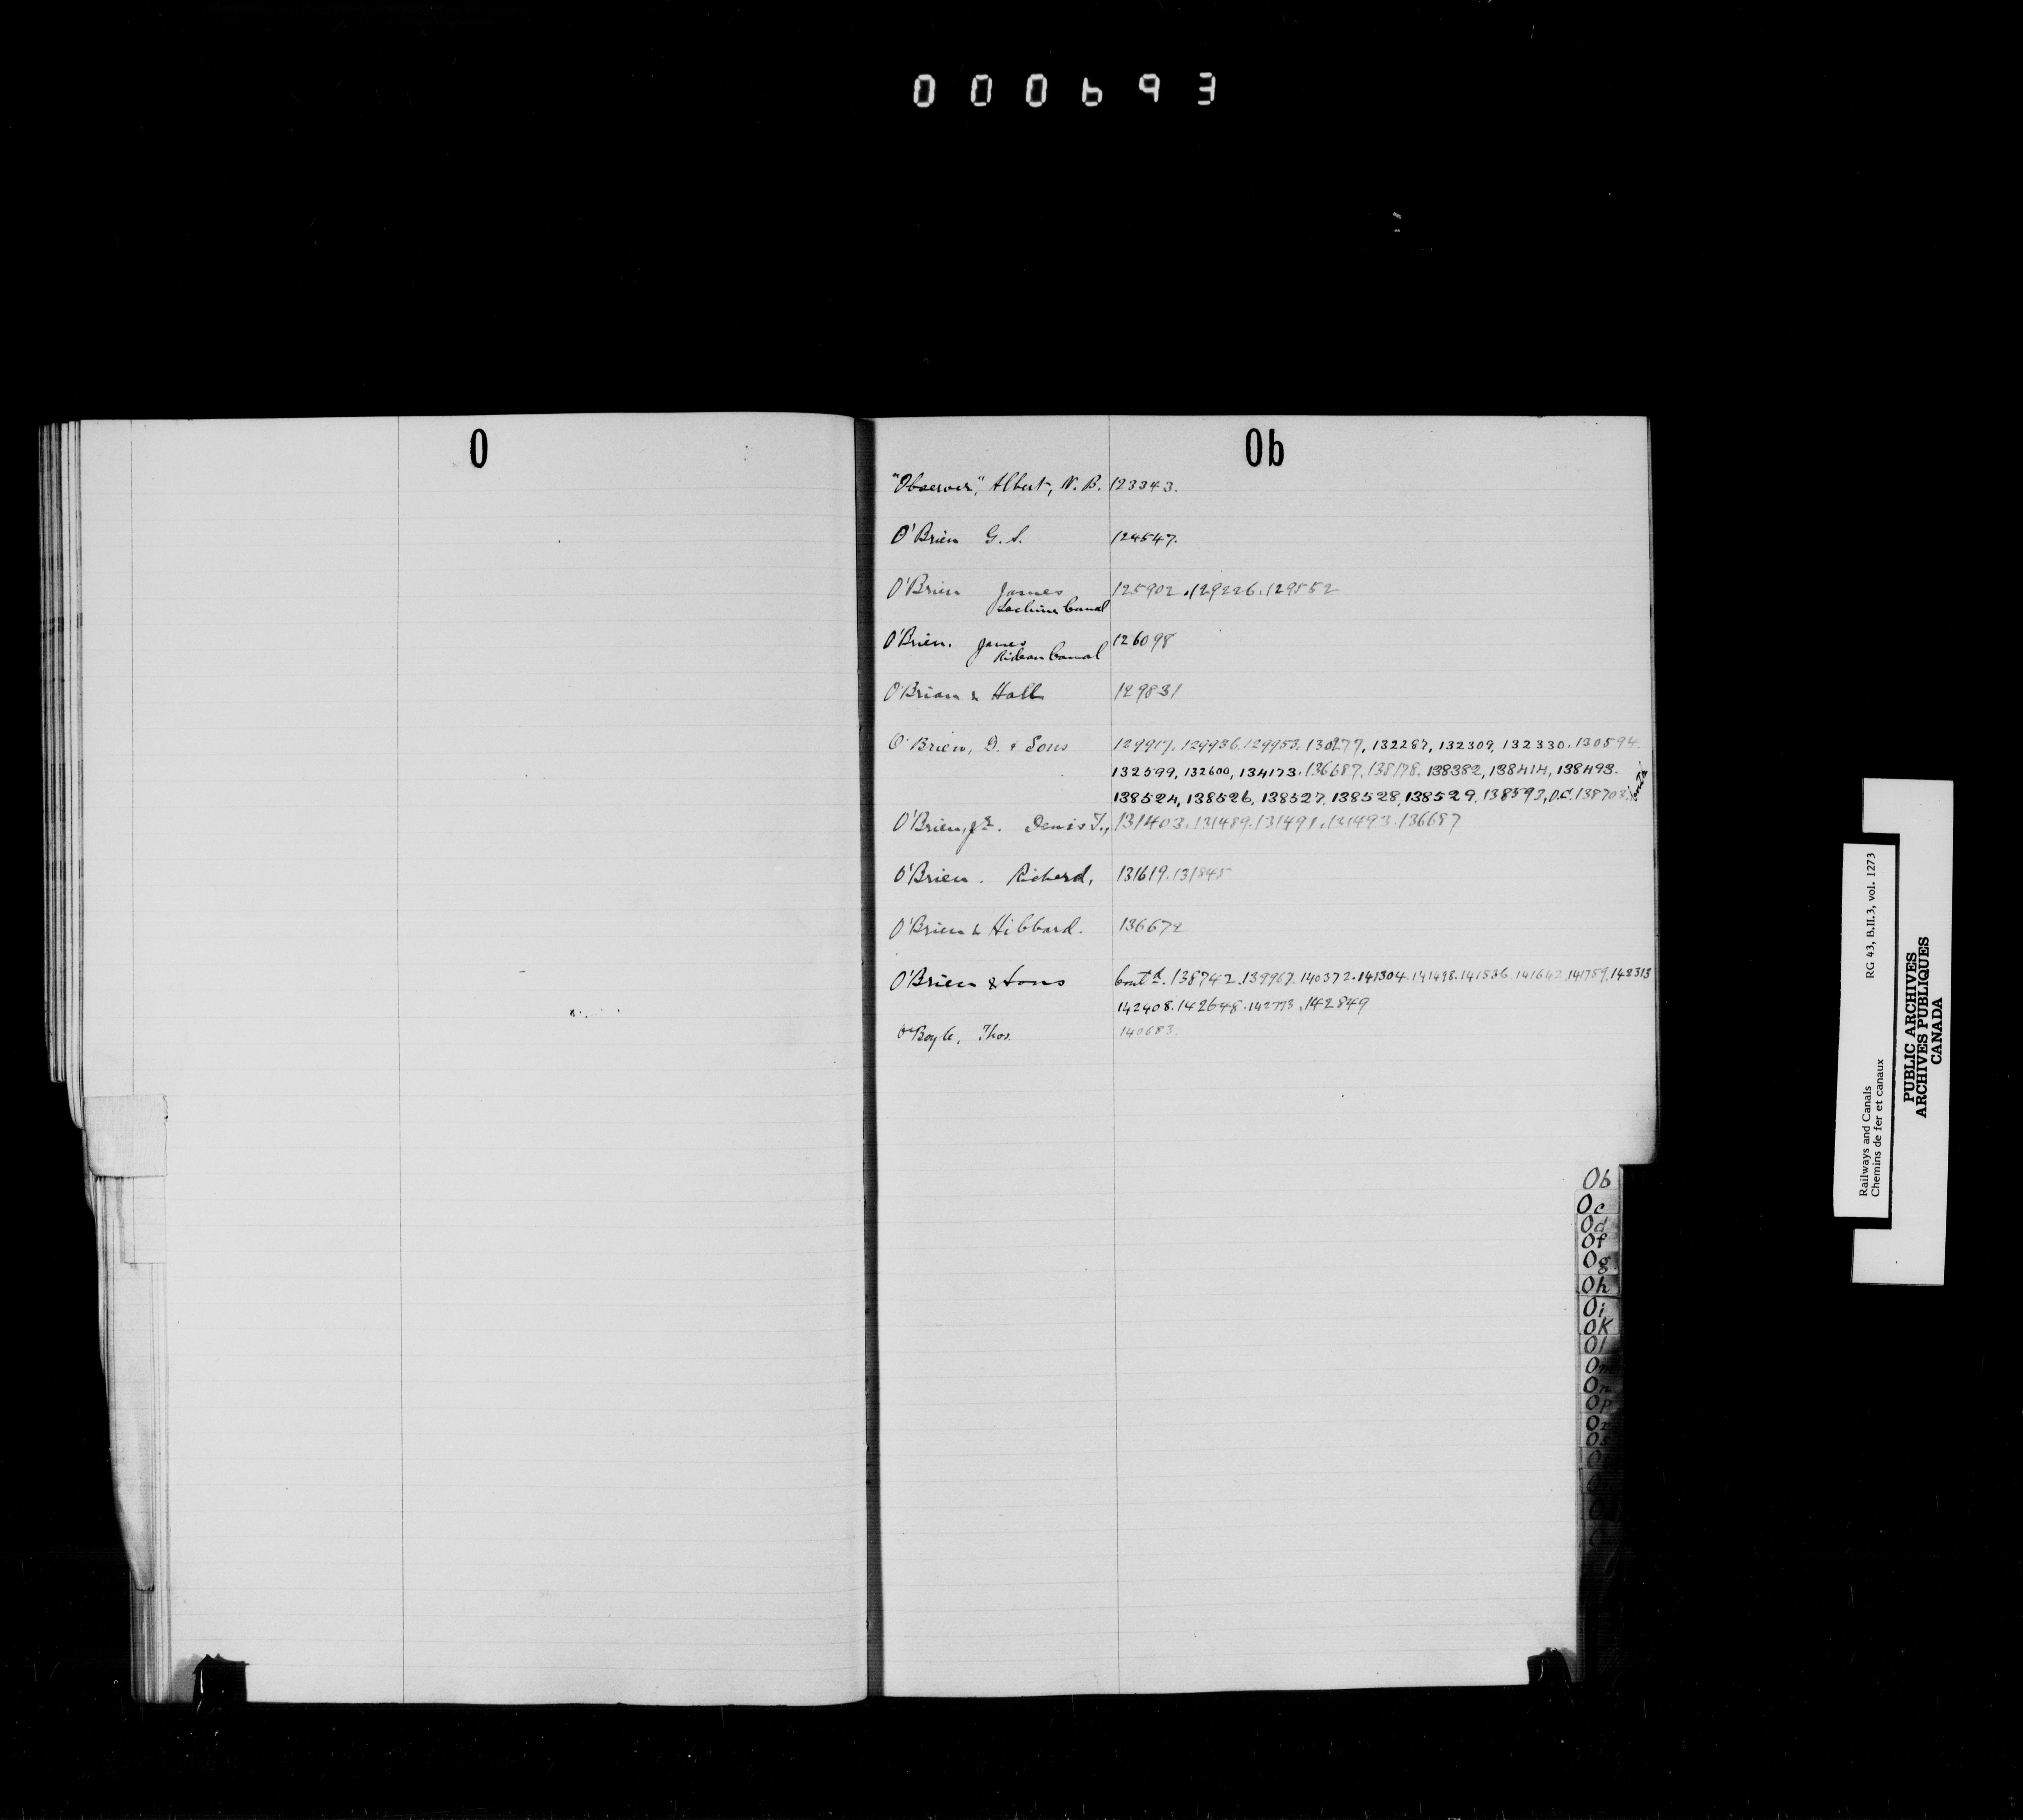 000693
O
Ob
"Observer", Albert, N. B. 123343.
O'Brien G. S. 124547.
O'Brien James 125902.129226.129552
Lachine Canal
O'Brien. James 126098
Rideau Canal
O'Brian & Hall 129831
O'Brien, D. & Sons 129917.129936.129953.130277, 132287, 132309, 132330.130594.
132599, 132600, 134173.136687.138178.138382, 138414, 138493.
138524, 138526, 138527, 138528, 138529.138593, O.C. 138703. Contd
O'Brien, Jr. Denis T., 131403.131489.131491.131493.136687
O'Brien. Richard, 131619.131845
O'Brien & Hibbard. 136672
O'Brien & Sons Contd. 138742.139967.140372.141304.141498.141536.141642.141759.142313
142408.142648.142773.142849
O'Boyle, Thos. 140683.
Ob
Oc
Od
Of
Og
Oh
Oi
OK
Ol
Om
On
Op
Or
Os
Railways and Canals RG 43, B.II.3, vol. 1273
Chemins de fer et canaux
PUBLIC ARCHIVES
ARCHIVES PUBLIQUES
CANADA